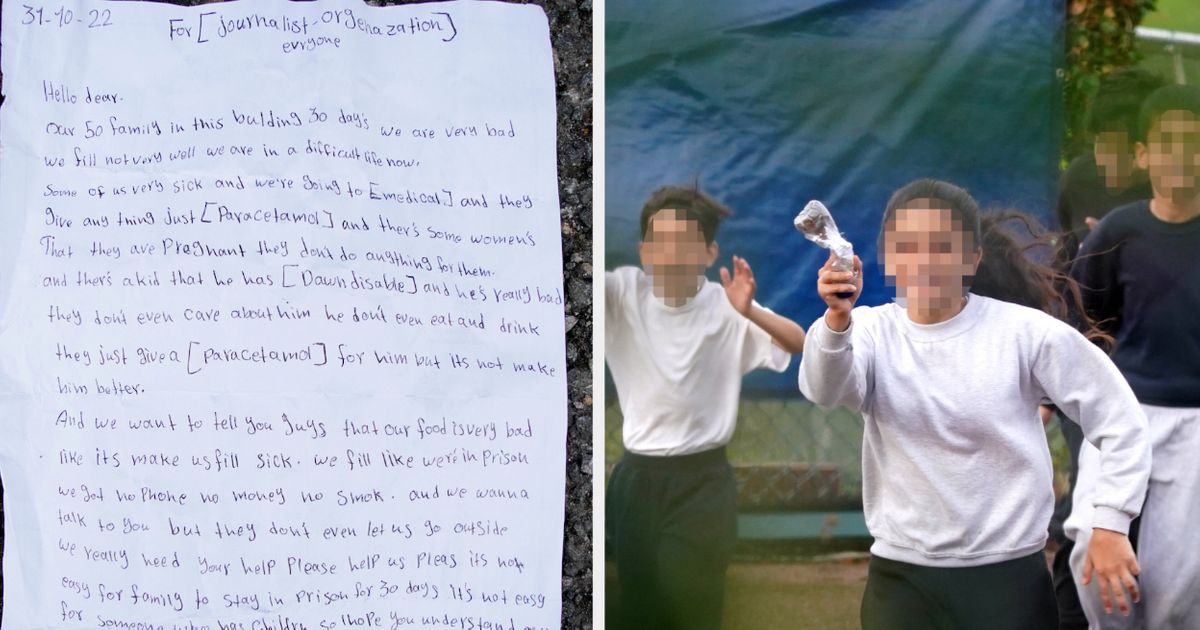 31-10-22
For [journalist-orgenazation]
evryone
Hello dear.
our 50 family in this bulding 30 day's we are very bad
we fill not very well we are in a difficult life now.
Some of us very sick and we're going to [medical] and they
give any thing just [Paracetamol] and ther's some women's
That they are Pregnant they don't do anything for them.
and ther's a kid that he has [Dawn disable] and he's really bad
they don't even care about him he don't even eat and drink
they just give a [paracetamol] for him but its not make
him better.
And we want to tell you guys that our food is very bad
like its make us fill sick. we fill like we're in Prison
we got no Phone no money no smok. and we wanna
talk to you but they don't even let us go outside
we really need your help Please help us Pleas its not
easy for family to stay in Prison for 30 days it's not easy
for someone who has children so I hope you understand